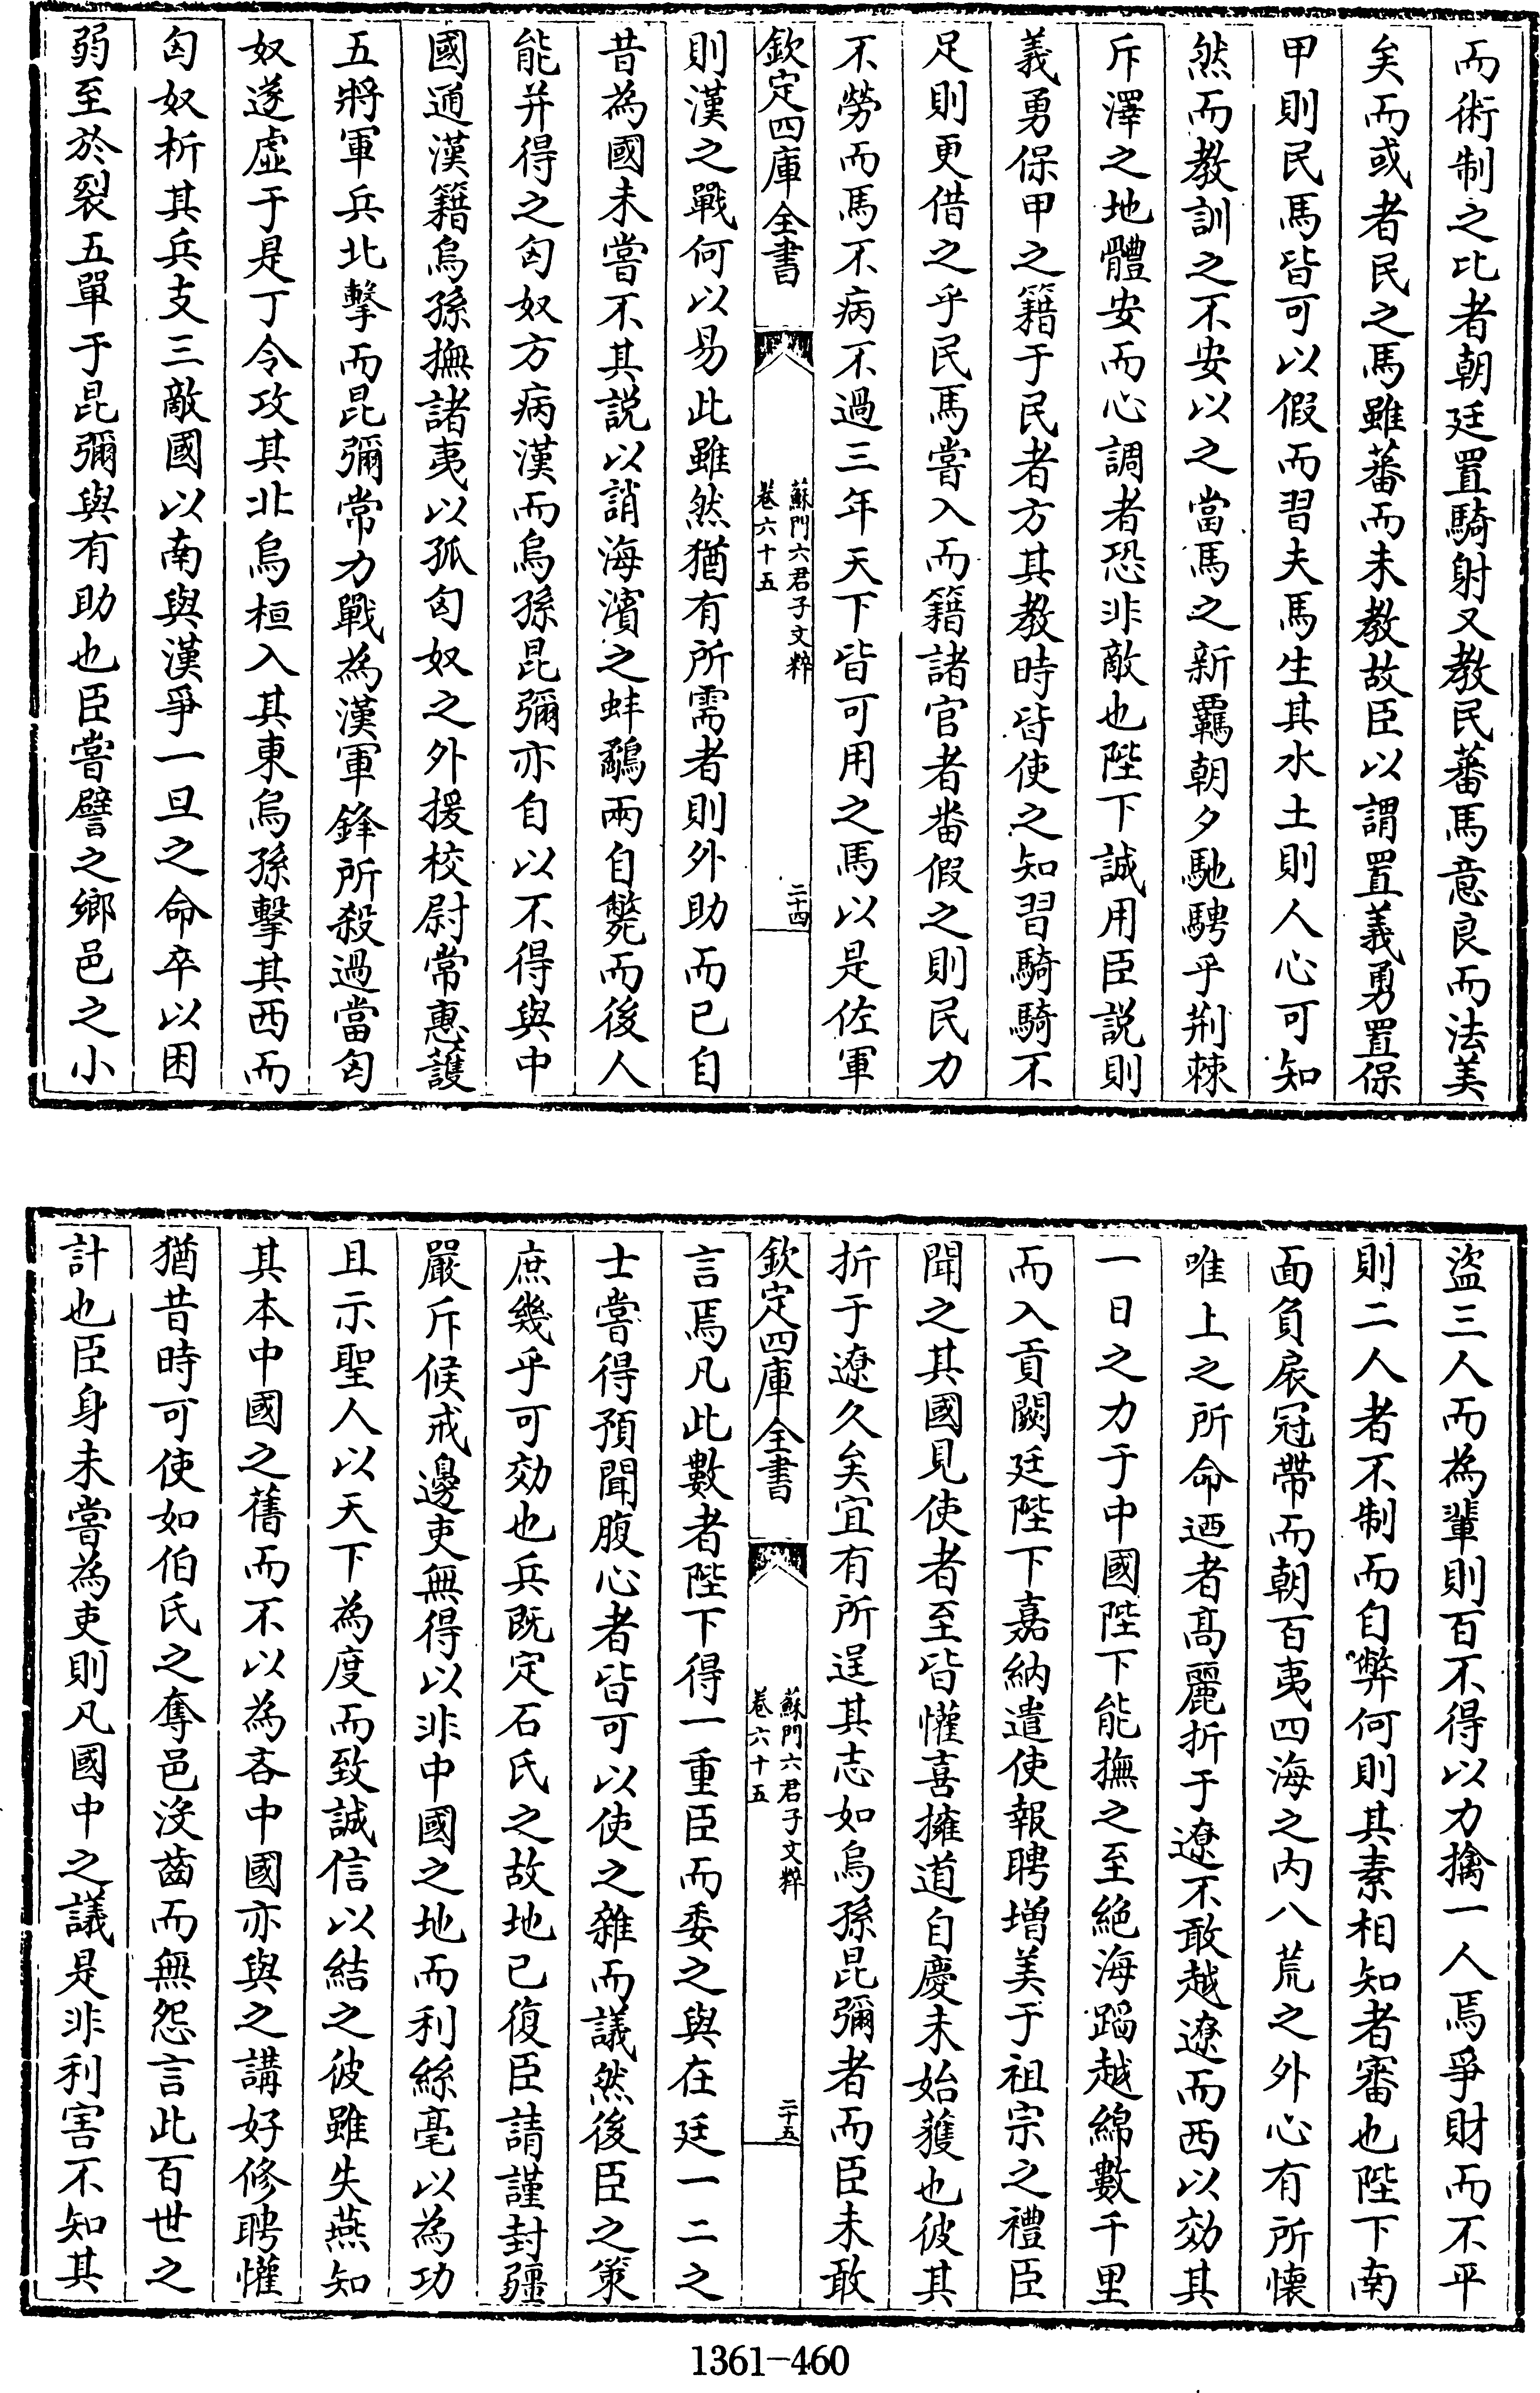 而術制之比者朝廷置騎射又教民蕃馬意良而法美
矣而或者民之馬雖蕃而未教故臣以謂置義勇置保
甲則民馬皆可以假而習夫馬生其水土則人心可知
然而教訓之不安以之當馬之新羈朝夕馳騁乎荆棘
斥澤之地體安而心調者恐非敵也陛下誠用臣説則
義勇保甲之籍于民者方其教時皆使之知習騎騎不
足則更借之乎民馬嘗入而籍諸官者畨假之則民力
不勞而馬不病不過三年天下皆可用之馬以是佐軍
欽定四庫全書
蘇門六君子文粹
卷六十五
二十四
則漢之戰何以易此雖然猶有所需者則外助而已自
昔為國未嘗不其説以誚海濱之蚌鷸兩自斃而後人
能并得之匈奴方病漢而烏孫昆彌亦自以不得與中
國通漢籍烏孫撫諸夷以孤匈奴之外援校尉常惠護
五將軍兵北擊而昆彌常力戰為漢軍鋒所殺過當匈
奴遂虚于是丁令攻其北烏桓入其東烏孫擊其西而
匈奴析其兵支三敵國以南與漢爭一旦之命卒以困
弱至於裂五單于昆彌與有助也臣嘗譬之鄉邑之小
盜三人而為輩則百不得以力擒一人焉爭財而不平
則二人者不制而自弊何則其素相知者審也陛下南
面負扆冠帶而朝百夷四海之内八荒之外心有所懐
唯上之所命迺者髙麗折于遼不敢越遼而西以効其
一日之力于中國陛下能撫之至絶海蹈越綿數千里
而入貢闕廷陛下嘉納遣使報聘增美于祖宗之禮臣
聞之其國見使者至皆懽喜擁道自慶未始獲也彼其
折于遼久矣宜有所逞其志如烏孫昆彌者而臣未敢
欽定四庫全書
蘇門六君子文粹
卷六十五
二十五
言焉凡此數者陛下得一重臣而委之與在廷一二之
士嘗得預聞腹心者皆可以使之雜而議然後臣之策
庶幾乎可効也兵既定石氏之故地已復臣請謹封疆
嚴斥候戒邊吏無得以非中國之地而利絲毫以為功
且示聖人以天下為度而致誠信以結之彼雖失燕知
其本中國之舊而不以為吝中國亦與之講好修聘懽
猶昔時可使如伯氏之奪邑沒齒而無怨言此百世之
計也臣身未嘗為吏則凡國中之議是非利害不知其
1361-460